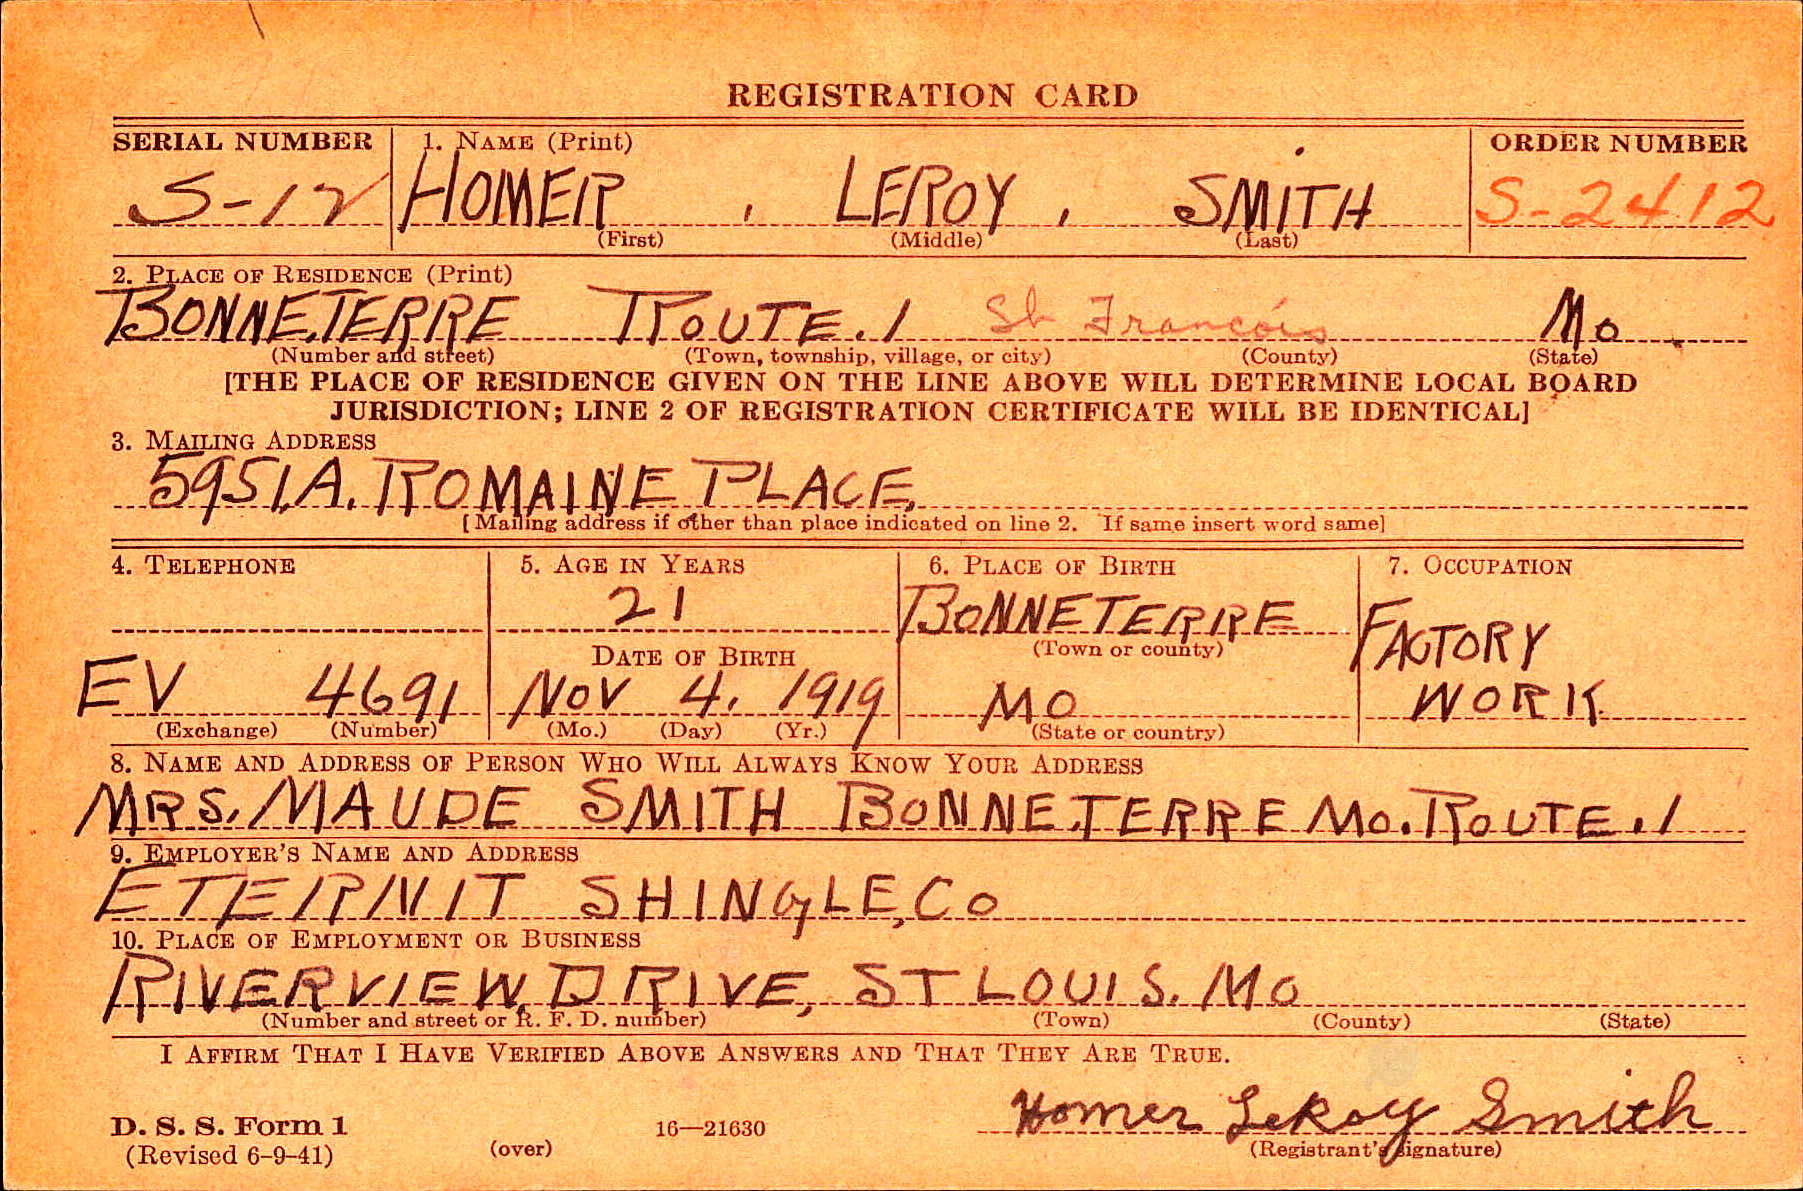 REGISTRATION CARD
SERIAL NUMBER 1. NAME (Print) ORDER NUMBER
S-12 HOMER , LEROY , SMITH S-2412
(First) (Middle) (Last)
2. PLACE OF RESIDENCE (Print)
BONNE.TERRE ROUTE.1 St Francois Mo
(Number and street) (Town, township, village, or city) (County) (State)
[THE PLACE OF RESIDENCE GIVEN ON THE LINE ABOVE WILL DETERMINE LOCAL BOARD
JURISDICTION; LINE 2 OF REGISTRATION CERTIFICATE WILL BE IDENTICAL]
3. MAILING ADDRESS
5951,A. ROMAINE PLACE,
[Mailing address if other than place indicated on line 2. If same insert word same]
4. TELEPHONE 5. AGE IN YEARS 6. PLACE OF BIRTH 7. OCCUPATION
21 BONNETERRE FACTORY
DATE OF BIRTH (Town or county)
EV 4691 NOV 4, 1919 MO WORK.
(Exchange) (Number) (Mo.) (Day) (Yr.) (State or country)
8. NAME AND ADDRESS OF PERSON WHO WILL ALWAYS KNOW YOUR ADDRESS
MRS. MAUDE SMITH BONNE.TERRE MO. ROUTE.1
9. EMPLOYER'S NAME AND ADDRESS
ETERNIT SHINGLE, Co
10. PLACE OF EMPLOYMENT OR BUSINESS
RIVERVIEW DRIVE, ST LOUIS. MO
(Number and street or R. F. D. number) (Town) (County) (State)
I AFFIRM THAT I HAVE VERIFIED ABOVE ANSWERS AND THAT THEY ARE TRUE.
Homer LeRoy Smith
D. S. S. Form 1 16—21630
(Revised 6-9-41) (over) (Registrant's signature)